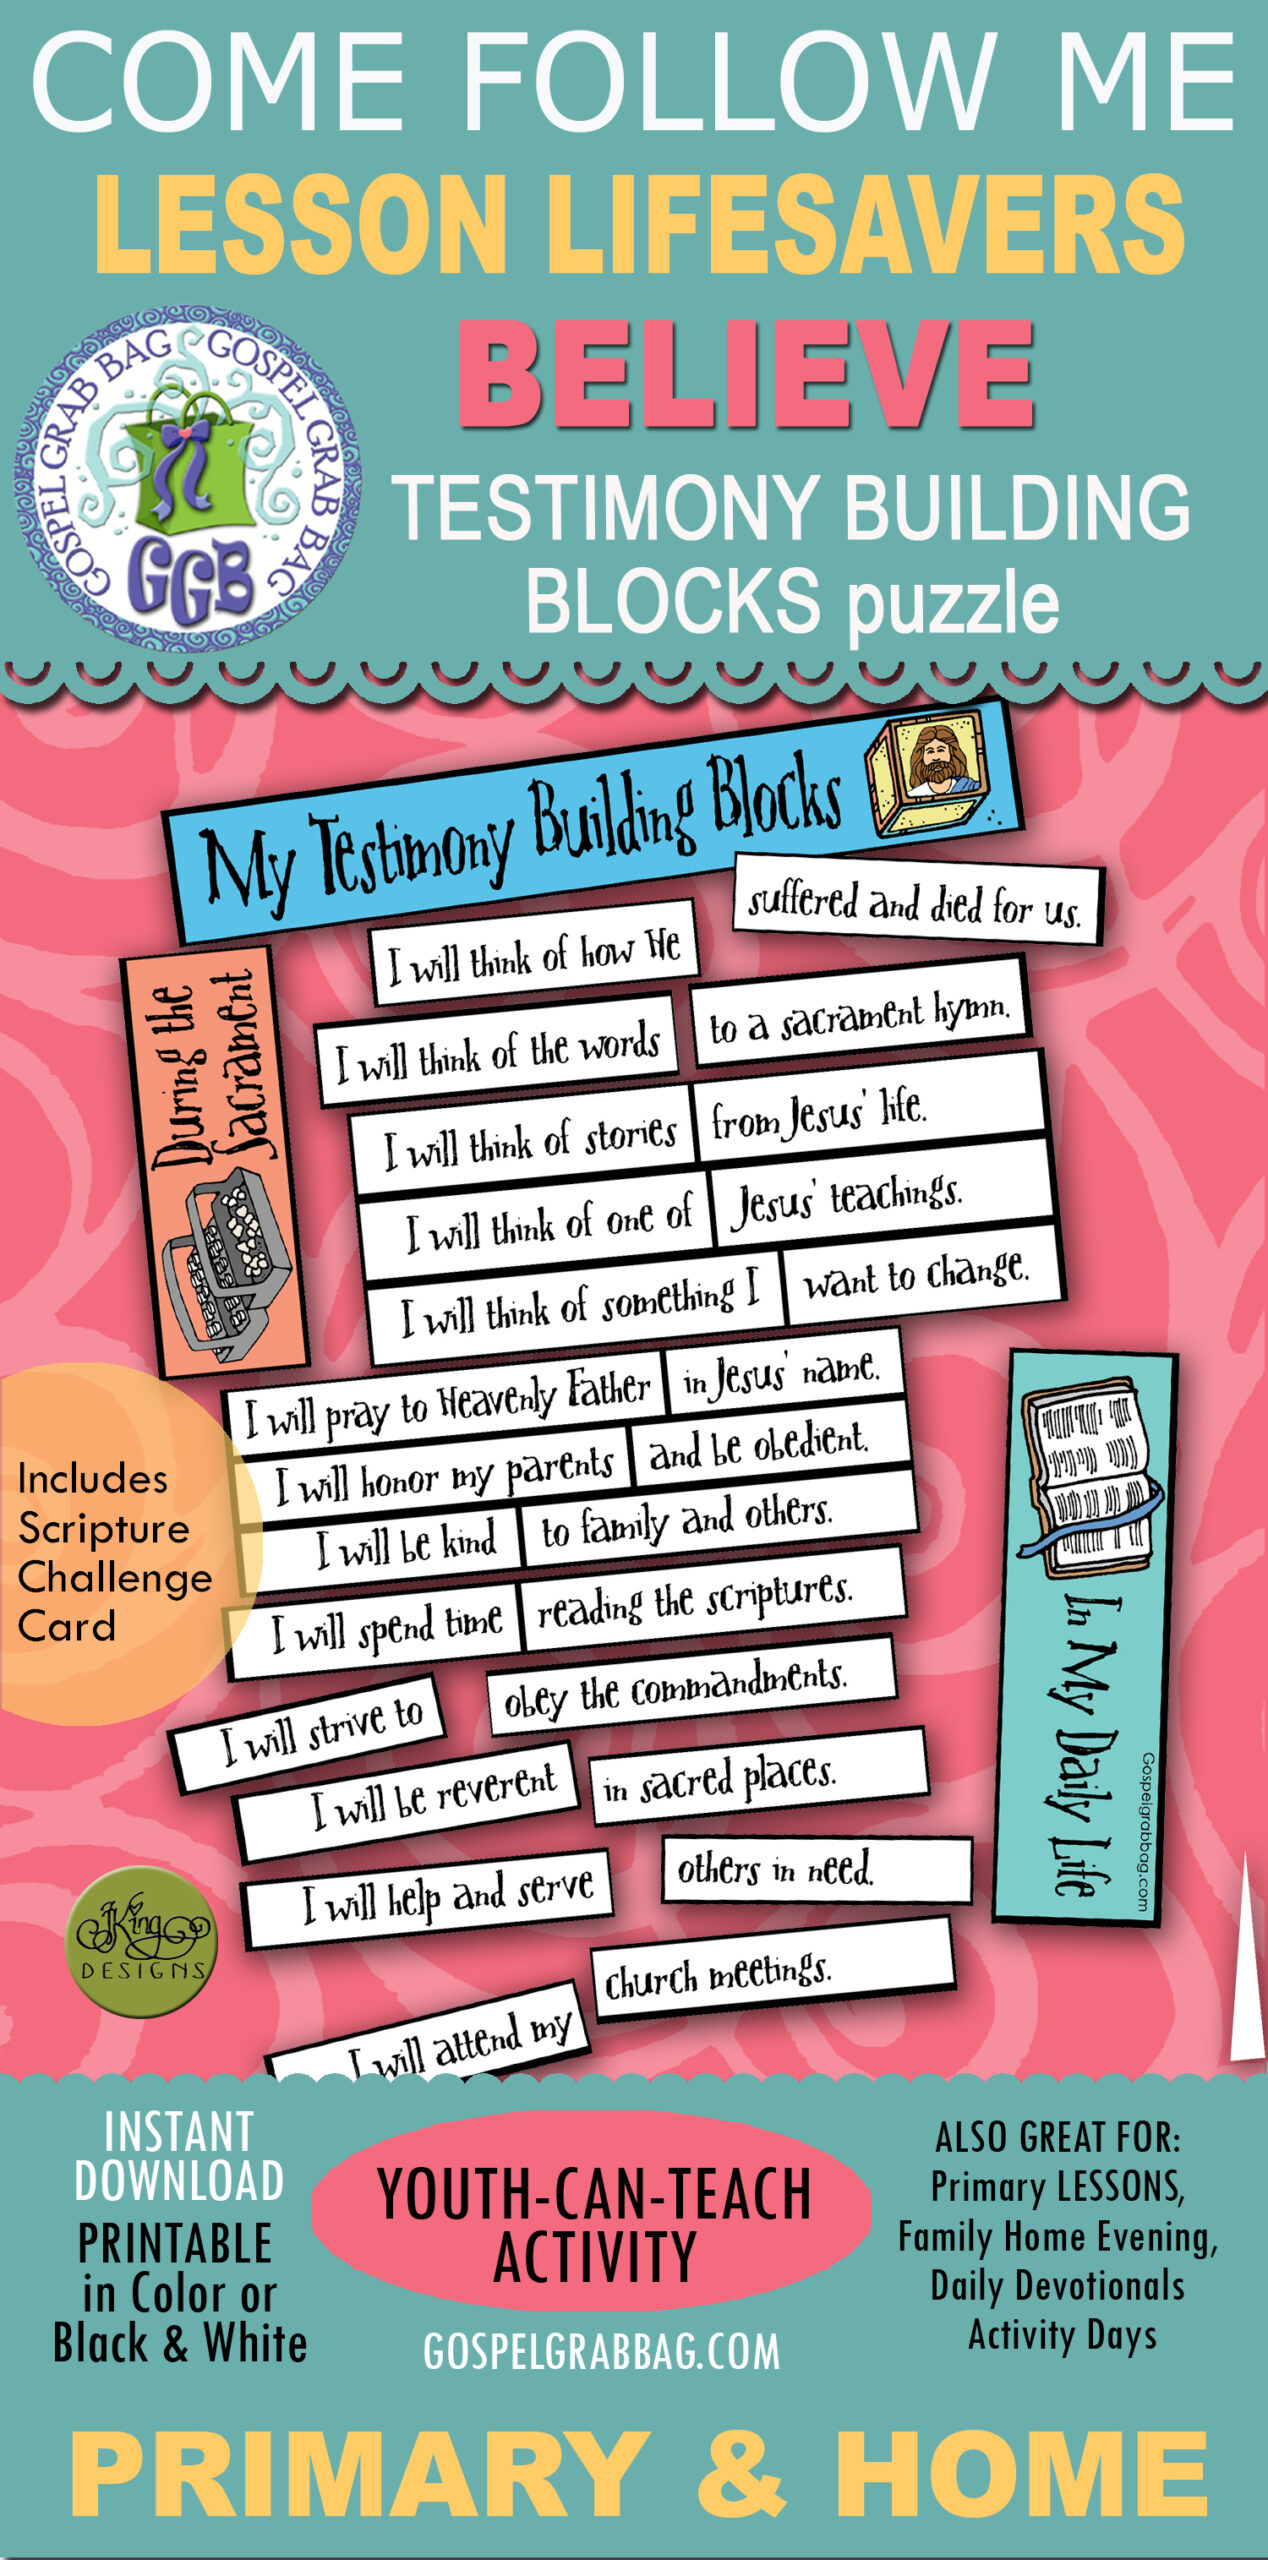 COME FOLLOW ME
LESSON LIFESAVERS
BELIEVE
GOSPEL GRAB BAG GOSPEL GRAB BAG
GGB
TESTIMONY BUILDING
BLOCKS puzzle
My Testimony Building Blocks
During the
Sacrament
I will think of how He
suffered and died for us.
I will think of the words
to a sacrament hymn.
I will think of stories
from Jesus' life.
I will think of one of
Jesus' teachings.
I will think of something I
want to change.
I will pray to Heavenly Father
in Jesus' name.
I will honor my parents
and be obedient.
I will be kind
to family and others.
I will spend time
reading the scriptures.
I will strive to
obey the commandments.
I will be reverent
in sacred places.
I will help and serve
others in need.
I will attend my
church meetings.
In My Daily Life
Gospelgrabbag.com
Includes
Scripture
Challenge
Card
JKing
DESIGNS
INSTANT
DOWNLOAD
PRINTABLE
in Color or
Black & White
YOUTH-CAN-TEACH
ACTIVITY
GOSPELGRABBAG.COM
ALSO GREAT FOR:
Primary LESSONS,
Family Home Evening,
Daily Devotionals
Activity Days
PRIMARY & HOME